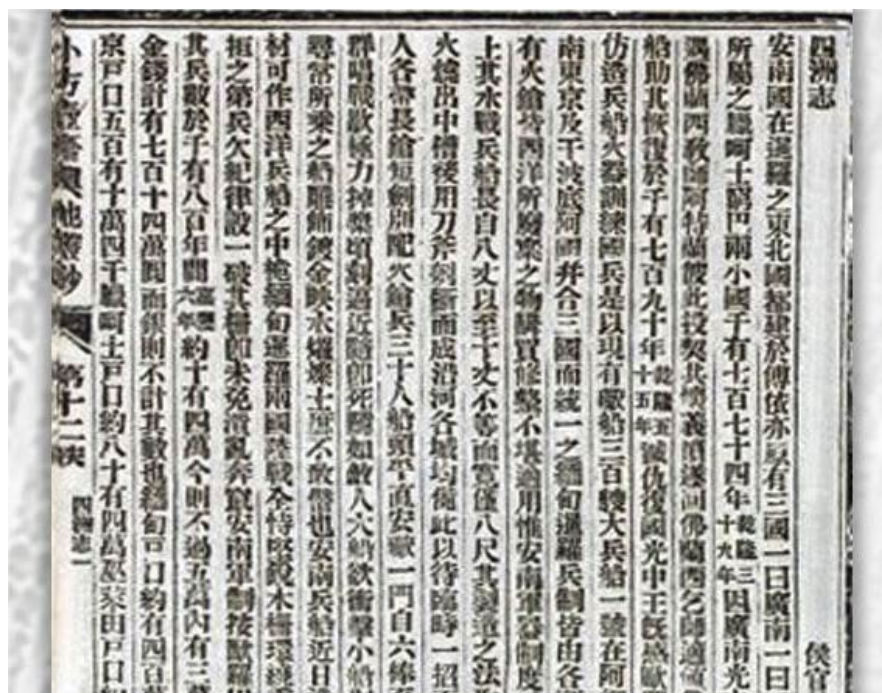 四洲志 侯官
安南國在暹羅之東北國都建於傅依亦有三國一曰廣南一曰
所屬之 兩小國千有七百七十四年乾隆三十九年因廣南光
佛蘭西教師阿特蘭彼此投契其 義 遂 佛蘭西乞師適值
船助其恢復於千有七百九十年乾隆五十五年滅仇復國光中王旣感歐
仿造兵船火器訓練國兵是以現有 船三百 大兵船一號在阿
南東京及干波底阿國并合三國而統一之緬甸暹羅兵制皆由各
有火鎗皆西洋所廢棄之物購買修整不堪適用惟安南軍器制度
上其水戰兵船長自八丈以至十丈不等而寬僅八尺其製造之法
火燒出中槽後用刀斧刻 而成沿河各城均備此以待臨時一招
人各帶長鎗短劍別配火鎗兵三十人船頭平直安礮一門自六棒
群唱戰歌極力掉槳頃刻過近隨卽死鬬如敵人大船欲衝擊小船
尋常所乘之船雕飾鍍金映水燿燦士庶不敢僭也安南兵船近日
材可作西洋兵船之中桅緬甸暹羅兩國陸戰全恃堅銳木柵環繞
拒之第兵欠紀律設一破其柵卽未免潰亂奔竄安南軍制按
其兵數於千有八百年間嘉慶六年約十有四萬今則不過五萬內有三
金錢計有七百十四萬圓而銀則不計其數也緬甸戶口約有四百
京戶口五百有十萬四千 阿士戶口約八十有四萬 萊田戶口
小方壺齋輿地叢鈔 第十二帙 四洲志一